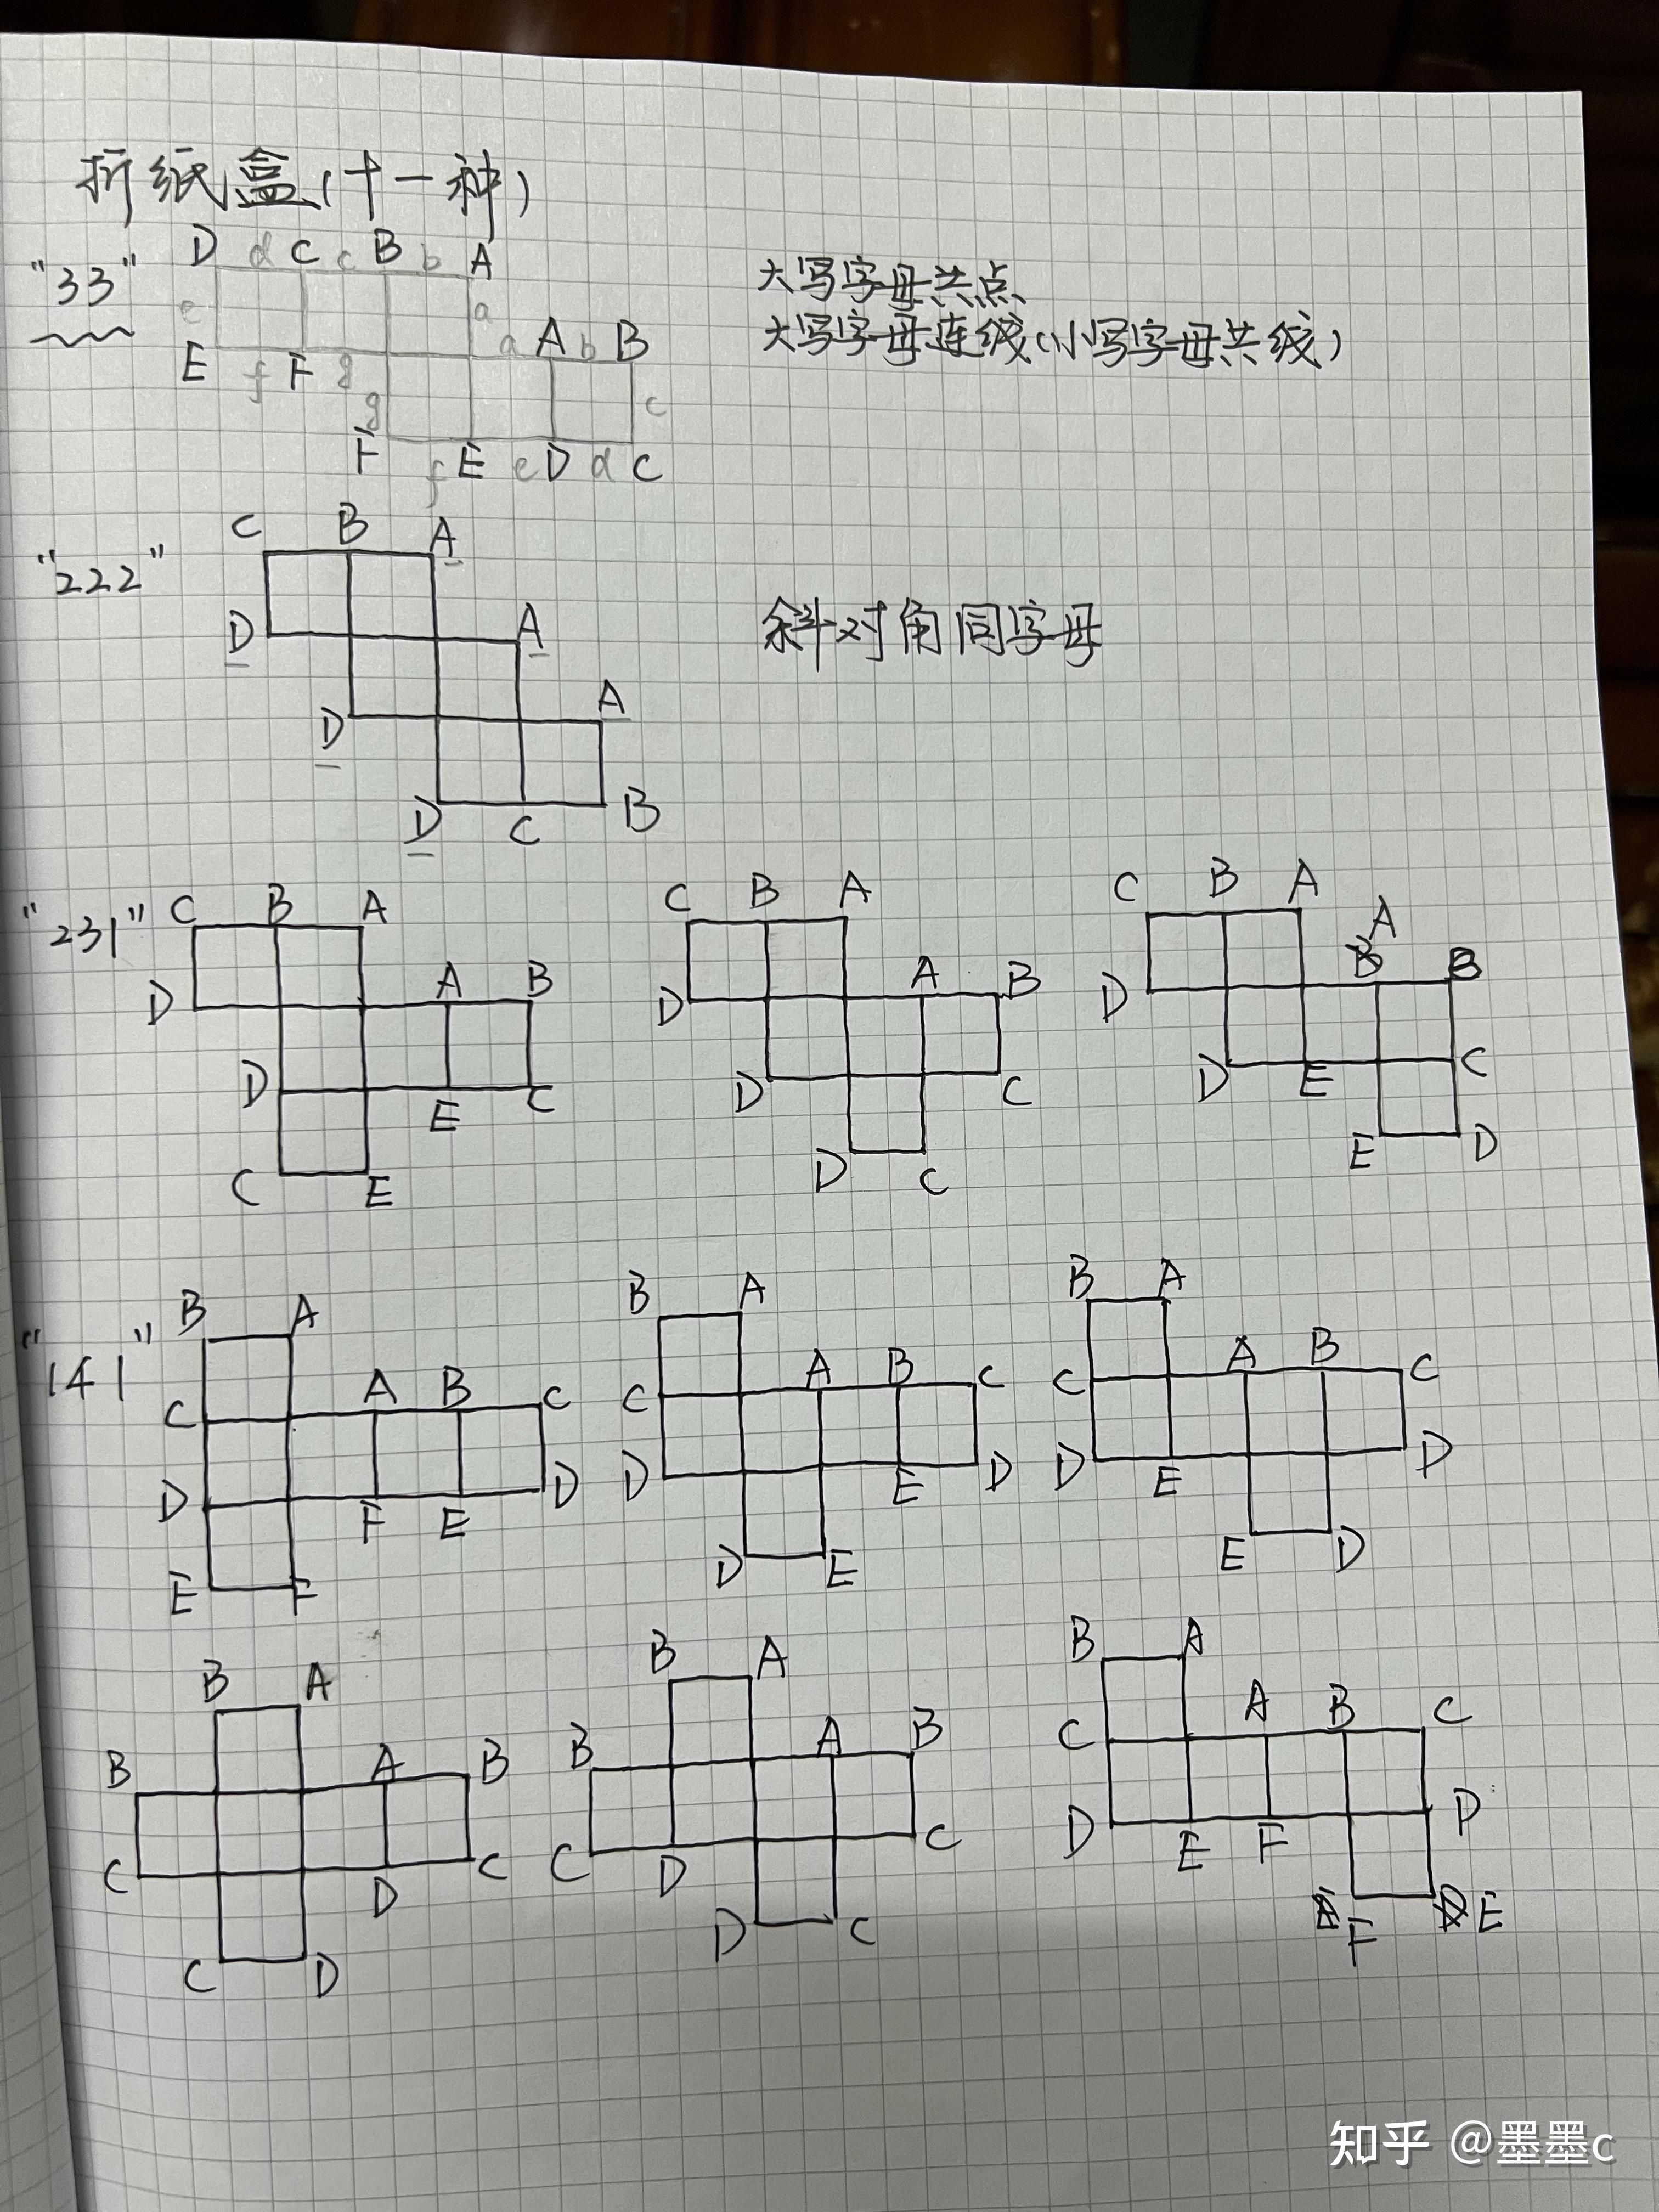 折纸盒(十一种)
"33" D d C c B b A
e a
E f F g a A b B
g c
F f E e D d C
大写字母共点
大写字母连线(小写字母共线)
"222" C B A
D A
D A
D C B
斜对角同字母
"231" C B A
D A B
D E C
C E
C B A
D A B
D C
D C
C B A
A
D B
D E C
E D
"141" B A
C A B C
D F E D
E F
B A
C A B C
D E D
D E
B A
C A B C
D E D
E D
B A
B A B
C D C
C D
B A
B A B
C D C
D C
B A
C A B C
D E F D
F E
知乎 @墨墨c